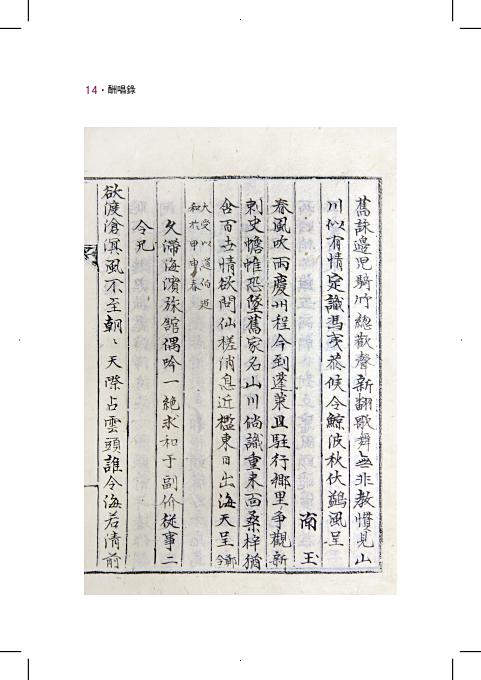 14・酬唱錄
舊詠邊児騎竹總歡聲新翻歌舞無非教慣見山
川似有情定識馮夷恭候令鯨波秋伏鷁風呈
南玉
春風吹雨慶州程今到蓬萊且駐行鄕里爭觀新
刺史幨帷恐墜舊家名山川倘識重来面桑梓猶
含百世情欲問仙槎消息近檻東日出海天呈
大受以道伯
和 甲申春
久滯海濱旅館偶吟一絶求和于副价從事二
令兄
欲渡滄溟風不至朝〻天際占雲頭誰令海若清前